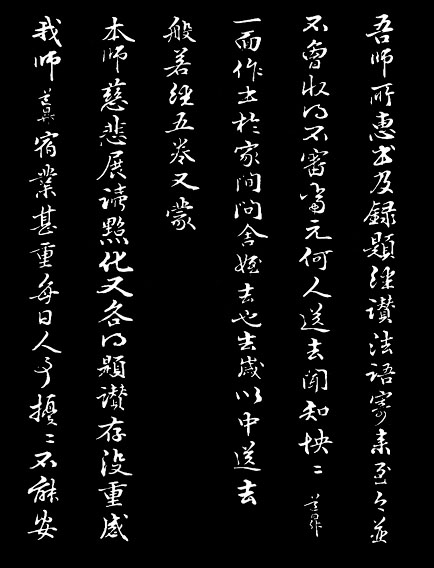 吾師所惠書及録題經讚法語寄来至今並
不曾收得不審當元何人送去聞知怏〻道昇
一面作書於家間問舍姪去也去歲以中送去
般若經五卷又蒙
本師慈悲展請點化又各得題讚存没重感
我師道昇宿業甚重每日人事擾〻不能安